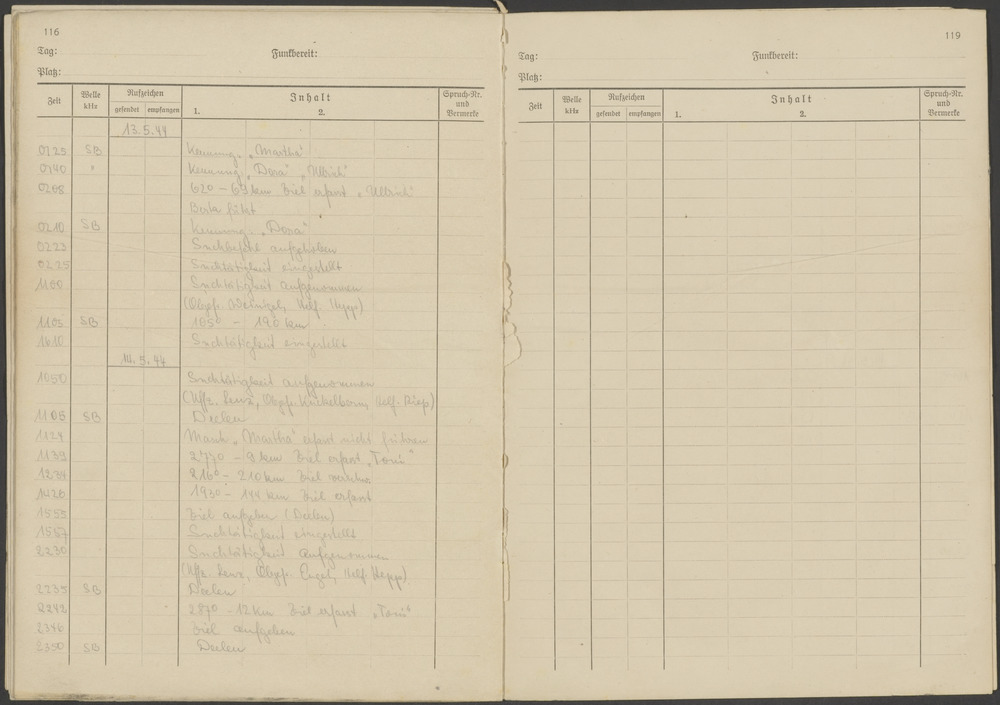 116
Tag: Funkbereit:
Platz:
Zeit Welle kHz Aufzeichen gesendet empfangen Inhalt 1. 2. Spruch-Nr. und Vermerke
13.5.44
0125 SB Kennung. „Martha"
0140 " Kennung „Dora" „Ullrich"
0208 620 – 69 km Ziel erfasst „Ullrich"
Berta führt
0210 SB Kennung. „Dora"
0223 Suchbefehl aufgehoben
0225 Suchtätigkeit eingestellt
1100 Suchtätigkeit aufgenommen
(Obgfr. Helf. Hepp)
1105 SB 1050 – 190 km
1610 Suchtätigkeit eingestellt
14.5.44
1050 Suchtätigkeit aufgenommen
(Uffz. Lenz, Obgfr. Kückelborn, Helf. Riep)
1105 SB Deelen
1124 Marsch „Martha" erfasst nicht führen
1139 2770 – 9 km Ziel erfasst „Toni"
1234 2160 – 210 km Ziel
1426 1930 – 144 km Ziel erfasst
1555 Ziel aufgeben (Deelen)
1557 Suchtätigkeit eingestellt
2230 Suchtätigkeit aufgenommen
(Uffz. Lenz, Obgfr. Engel, Helf. Hepp)
2235 SB Deelen
2242 2870 – 12 km Ziel erfasst „Toni"
2346 Ziel aufgeben
2350 SB Deelen
119
Tag: Funkbereit:
Platz:
Zeit Welle kHz Aufzeichen gesendet empfangen Inhalt 1. 2. Spruch-Nr. und Vermerke